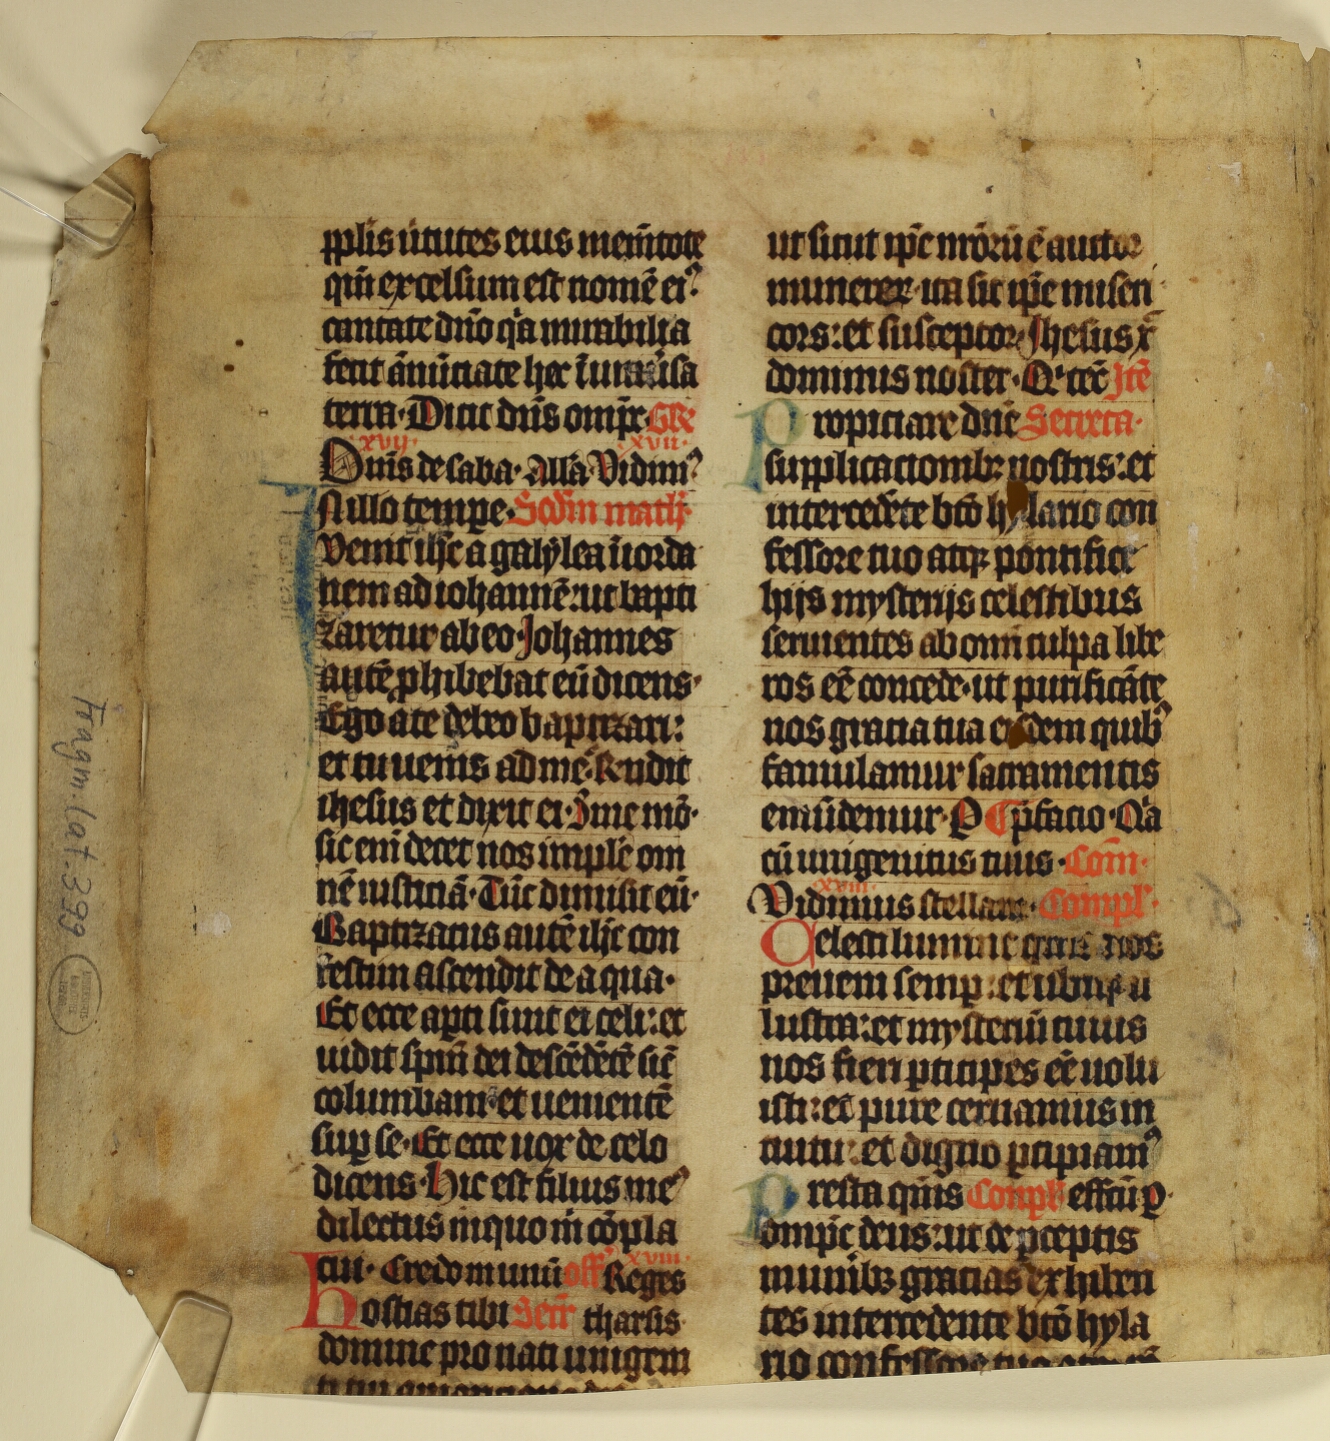 pplis ũtutes eius mem̃tote
qm̃ excelsum est nomẽ ei⁹
cantate dño qa mirabilia
fecit ãnũciate hec ĩ uniũsa
terra· Dicit dñs omp̃r· GR̃
xvij xvii·
Om̃s de saba· Alla Vidim⁹
In illo tempe· Scdm̃ math̃·
Venit ihc̃ a galylea ĩ iorda
nem ad iohannẽ: ut bapti
zaretur ab eo· Johannes
autẽ phibebat eũ dicens·
Ego a te debeo baptizari:
et tu uenis ad me· R̃ndit
ihesus et dixit ei· Sine mõ·
sic eni decet nos implẽ om
nẽ iusticiã· Tũc dimisit eũ·
Baptizatus autẽ ihc̃ con
festim ascendit de aqua·
Et ecce apti sunt ei celi: et
uidit spm̃ dei descẽdẽtẽ sic̃
columbam et uenientẽ
sup se· Et ecce uox de celo
dicens· Hic est filius me⁹
dilectus in quo m̃ cõpla
xviii·
cui· Credo in unũ off̃ Reges
Hostias tibi Secr̃ tharsis
domine pro nati unigeni
ut sicut ip̃e nr̃õrũ ẽ auctor
munerer· ita sit ip̃e miseri
cors: et susceptor· Jhesus x̃
dominus noster· Q· tec̃ Jtẽ
Propiciare dñe Secreta·
supplicacionibꝫ nostris: et
intercedẽte btõ hylario con
fessore tuo atqꝫ pontifice
hijs mysterijs celestibus
seruientes ab omi culpa libe
ros eẽ concede· ut purificãte
nos gracia tua eisdem quib⁹
famulamur sacramentis
emũdemur· P p̃facio· Qa
cũ unigenitus tuus· Com̃·
xviii·
Vidimus stellam· Compl̃·
Celesti lumine qm̃s nos
preueni semp: et ubiqꝫ u
lustra: et mysteriũ cuius
nos fieri pticipes eẽ uolu
isti: et pure cernamus in
tuitu: et digno pcipiam⁹
Presta qm̃s Conpl̃ effctũ p·
omp̃c deus: ut de pceptis
munibꝫ gracias exhiben
tes intercedente btõ hyla
rio confessore tuo
Fragm. lat. 399